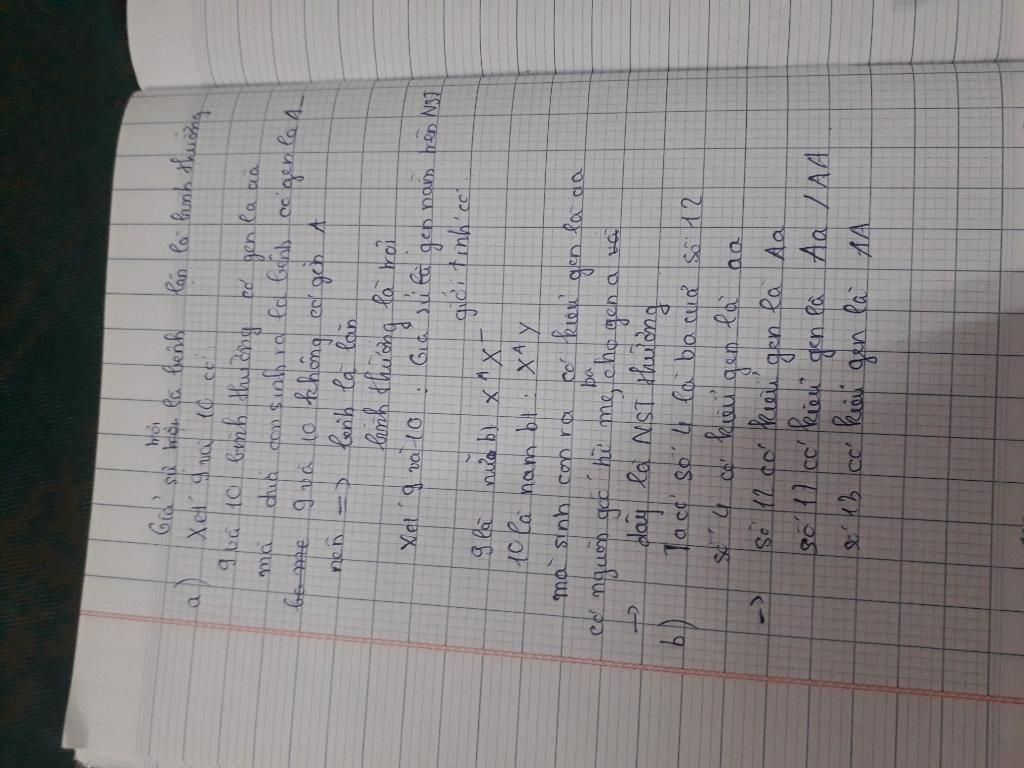 Giả sử trội là bệnh lặn là bình thường
a) Xét 9 và 10 có:
9 và 10 bình thường có gen là aa
mà đứa con sinh ra là bệnh có gen là A_
bố mẹ 9 và 10 không có gen A
nên => bệnh là lặn
bình thường là trội
Xét 9 và 10: Giả sử là gen nằm trên NST
giới tính có
9 là nữ bt X^A X^-
10 là nam bt: X^A Y
mà sinh con ra có kiểu gen là aa
có nguồn gốc từ mẹ, ba cho gen a và
-> đây là NST thường
b) Ta có số 4 là ba của số 12
số 4 có kiểu gen là aa
-> số 12 có kiểu gen là Aa
số 17 có kiểu gen là Aa / AA
số 13 có kiểu gen là AA